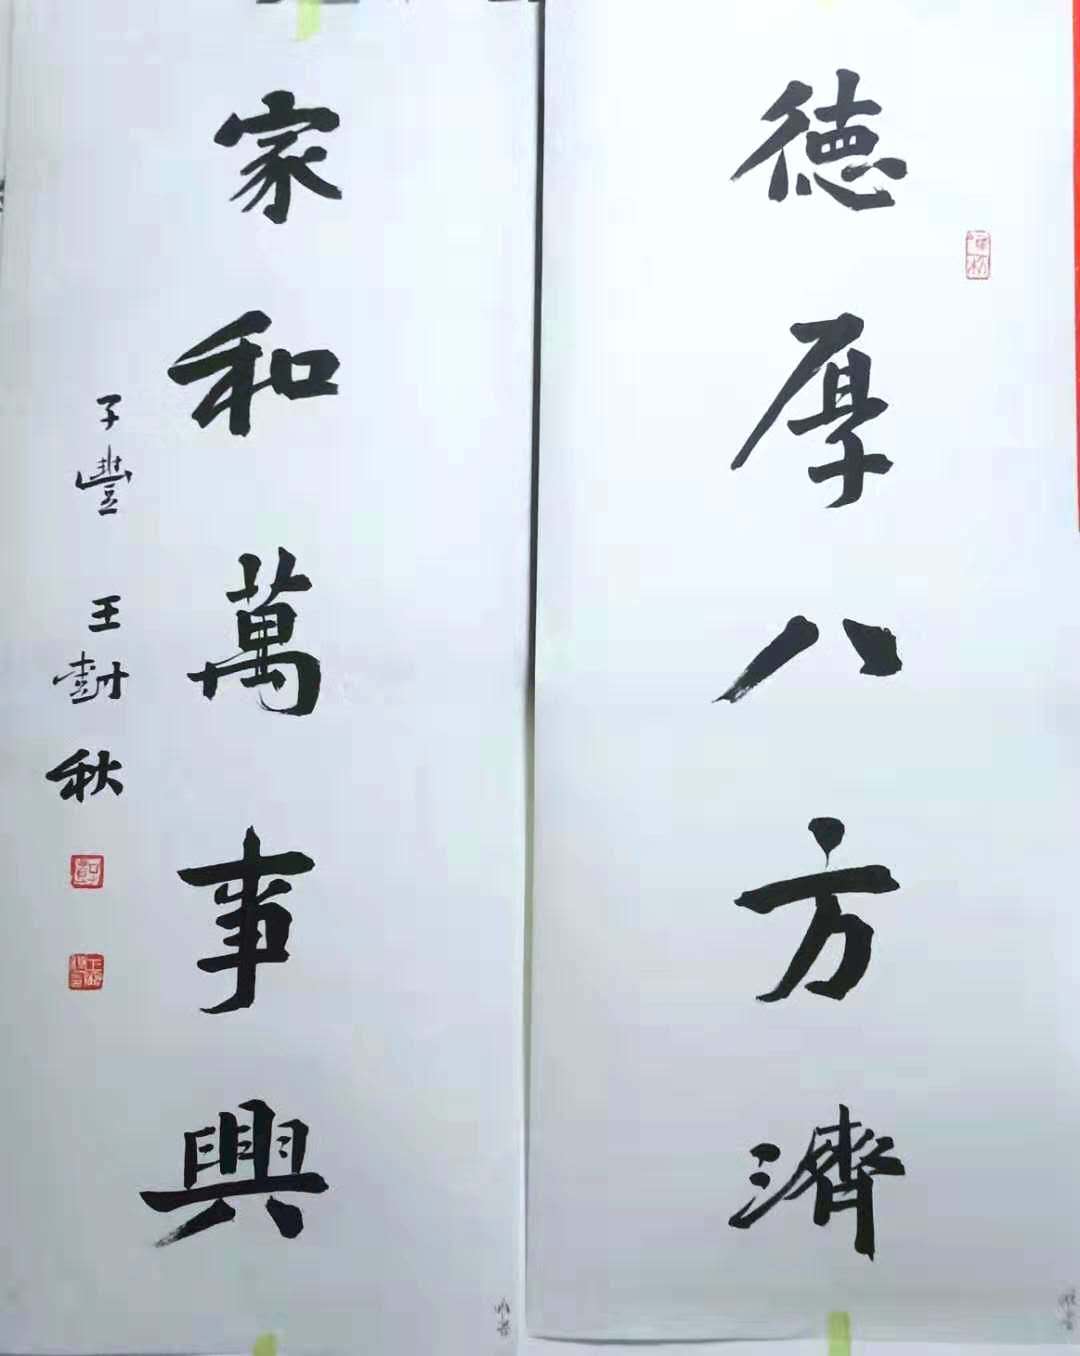 德厚八方濟
家和萬事興
子豐 王封秋